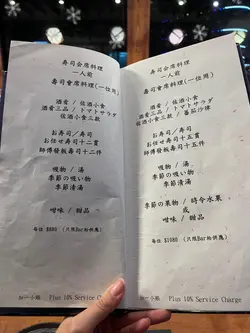 寿司会席料理
一人前
壽司會席料理(一位用)
酒肴 / 佐酒小食
酒肴三品 / トマトサラダ
佐酒小食三款 /
お寿司／寿司
お任せ寿司十二貫
師傅發板壽司十二件
吸物 / 湯
季節の吸い物
季節清湯
甜品
每位 $880 (只限Bar枱供應)
Plus 10% Service Charge
寿司会席料理
一人前
壽司會席料理(一位用)
酒肴 / 佐酒小食
酒肴三品 / トマトサラダ
佐酒小食三款 / 蕃茄沙律
お寿司／寿司
お任せ寿司十五貫
師傅發板壽司十五件
吸物 / 湯
季節の吸い物
季節清湯
季節の果物 / 時令水果
或
甜品
每位 $1080 (只限Bar枱供應)
Plus 10% Service Charge